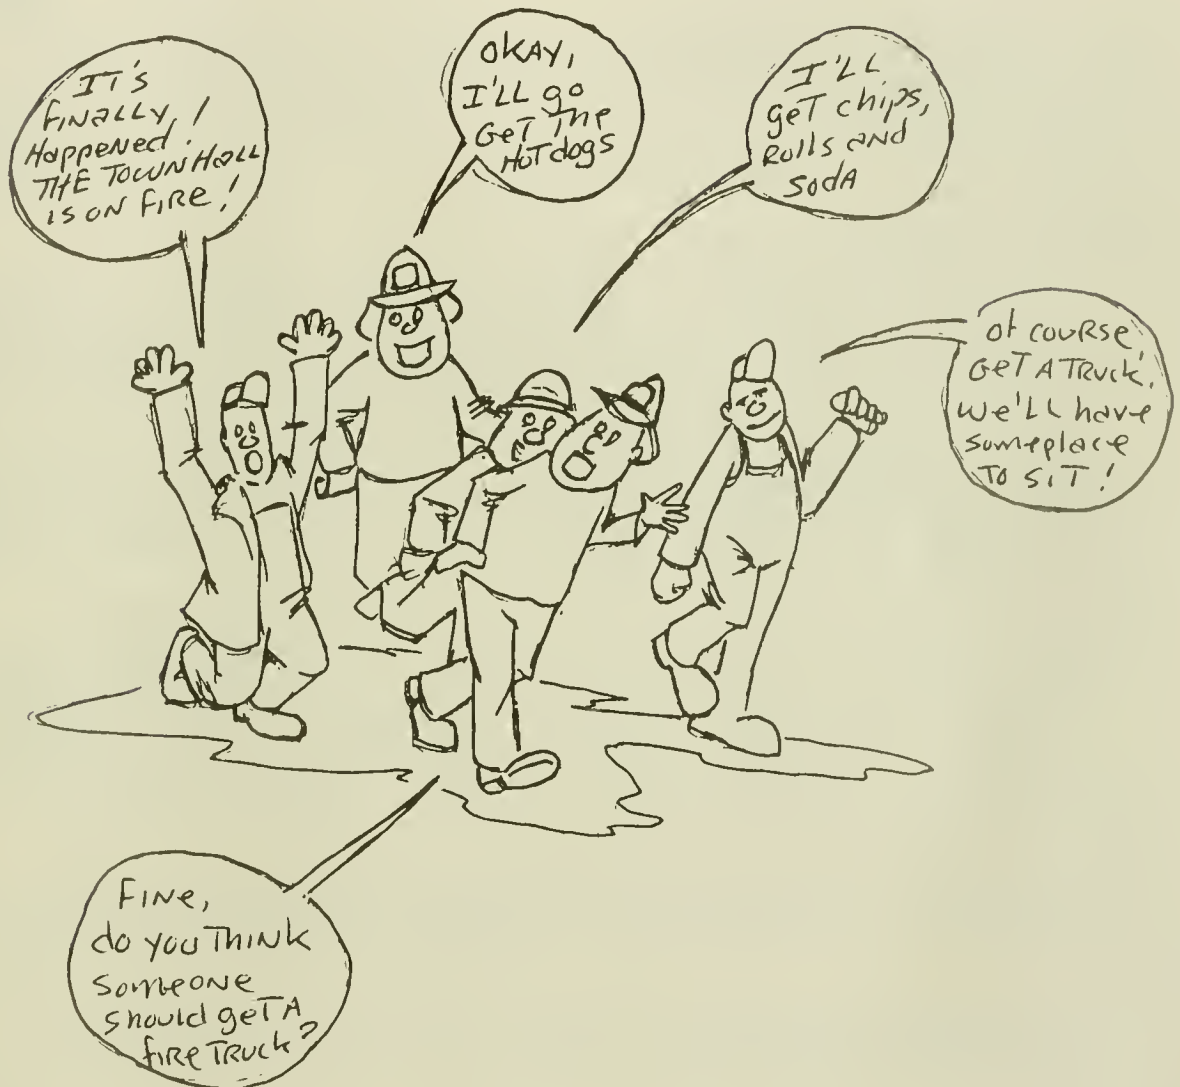 IT'S
FINALLY!
Happened!
THE TOWN HALL
IS ON FIRE!
OKAY,
I'LL go
GET The
HOT dogs
I'LL
geT chips,
Rolls and
SodA
of course,
GET A TRUCK.
we'LL have
someplace
TO SIT!
FINE,
do you THINK
SomeONE
should geT A
fiRe TRuck?